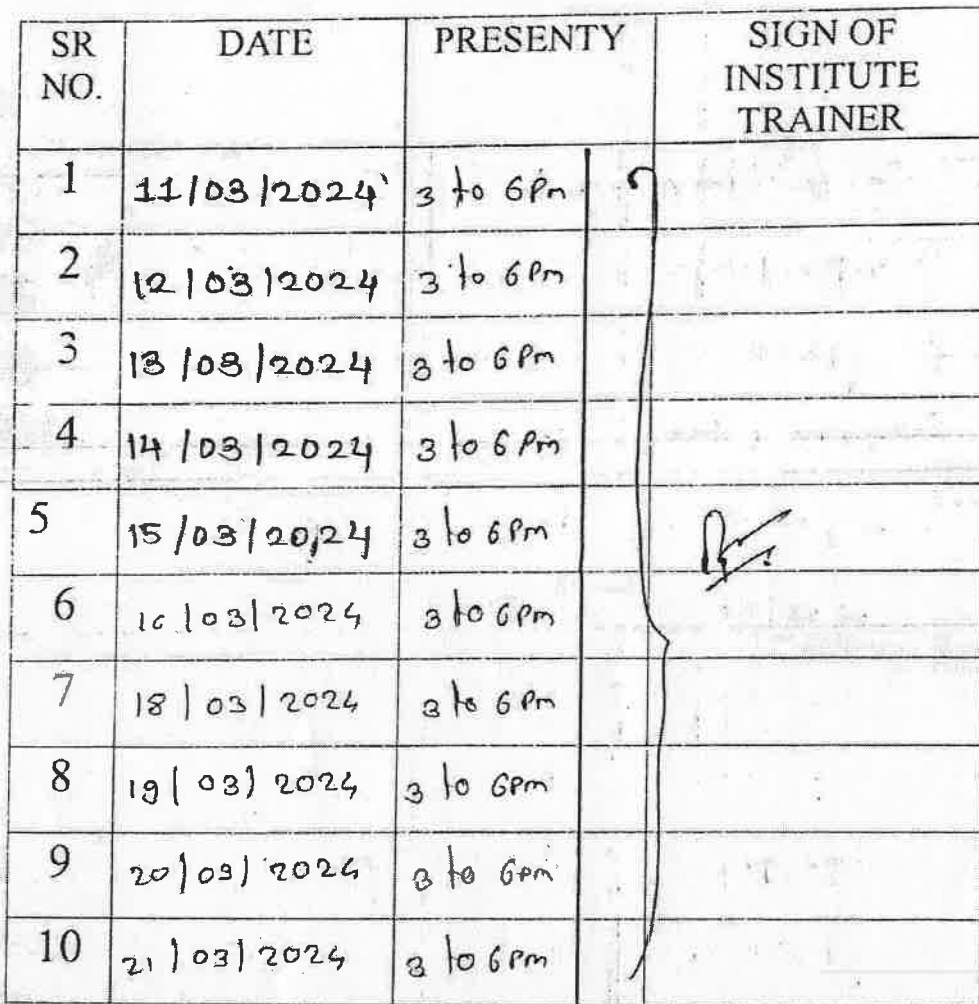 SR NO. DATE PRESENTY SIGN OF INSTITUTE TRAINER
1 11/03/2024 3 to 6 Pm
2 12/03/2024 3 to 6 Pm
3 13/03/2024 3 to 6 Pm
4 14/03/2024 3 to 6 Pm
5 15/03/2024 3 to 6 Pm
6 16/03/2024 3 to 6 Pm
7 18/03/2024 3 to 6 Pm
8 19/03/2024 3 to 6 Pm
9 20/03/2024 3 to 6 Pm
10 21/03/2024 3 to 6 Pm